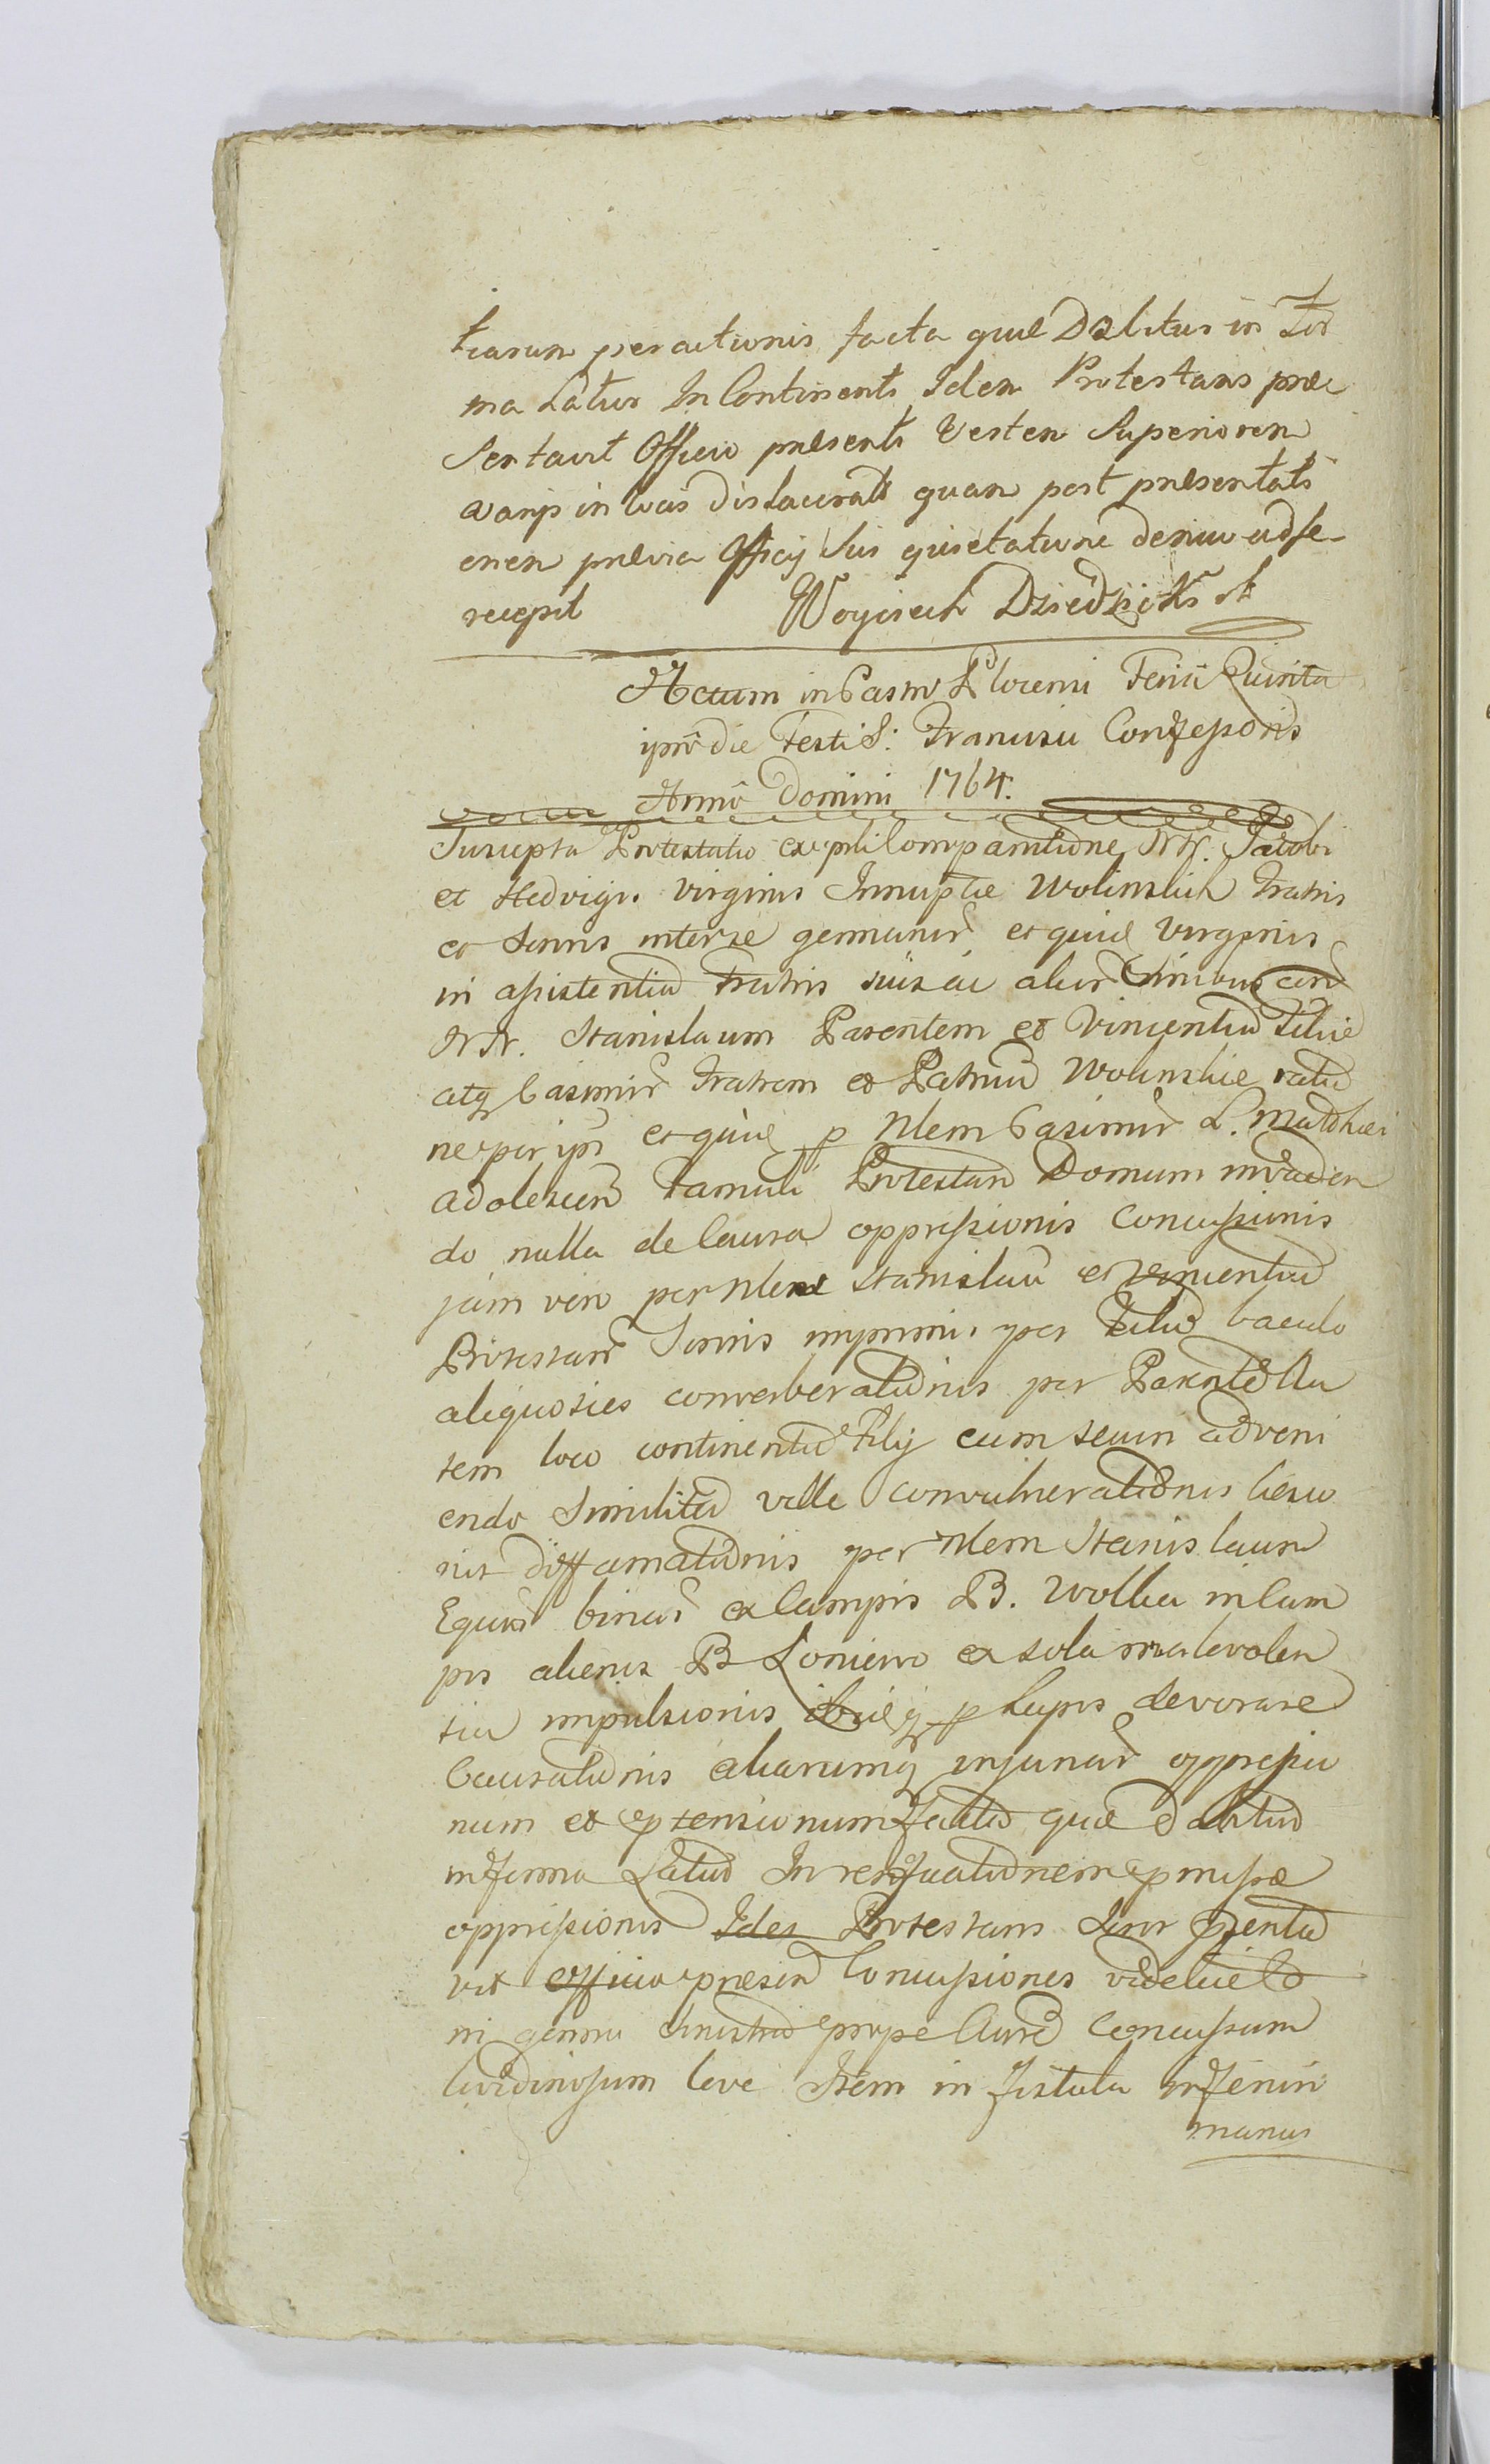 tiarum peractionis facta quæ Dabitur in For
ma Latior In Continenti Idem Protestans præ
sentavit Officio præsenti Vestem Superiorem
Varijs in locis dislacerat quam post præsentati
onem prævia Officij Sui quietatione denuo ad se
recepit Woyciech Dziedzicki
Actum in Castro Plocensi Feria Quinta
ipso die Festi S: Francisci Confessoris
Anno Domini 1764.
Suscepta Protestatio ex pnli Comparitione NN. Jacobi
et Hedvigis Virginis Innuptæ Wolinskich Fratris
et Sororis interse german et quidem Virginis
in assistentia Fratris sui ac alior
NN. Stanislaum Parentem et Vincentiu Filiu
atq Casimir Fratrem et Patruu Wolinskie ratio
ne per ips et quidem p Nlem Casimir L. Mathæi
adolescen famuli Protestan Domum invaden
do nulla de Causa oppressionis Concussionis
jam vero per Nlem Stanislau et Vincentiu
Protestan Sororis inprimis per Filiu baculo
aliquoties converberationis per Parente Au
tem loco continentiæ Filij cum secum adveni
endo Similiter velle convulnerationis læsio
nis diffamationis per Nlem Stanislaum
Equor binar ex Campis B. Wolka in Cam
pos alienos B Loniewo ex sola malevolen
tia impulsionis ibiq p Lupos devorare
Causationis aliarumq injuriar oppressio
num et prætensionum facta quæ dabitur
in forma Latior In verificationem præmissæ
oppressionis Idem Protestans Soror præsenta
vit Officio præsen Concussiones videlicet
in gena sinistra prope Aure Concussum
lividinosum leve Item in fistula inferiori
manus